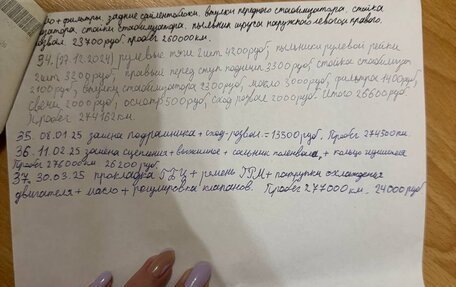 ро + фильтры, задние сайлентблоки, втулки переднего стабилизатора, стойка
затора, стойки стабилизатора, пыльник шруса наружного левого и правого.
развал. 23700 руб. пробег 260000 км.
34. (27.12.2024) рулевые тяги 2шт 4200 руб, пыльники рулевой рейки
2шт 3200 руб, правый перед ступ подшип 3300 руб стойка стабилиз
2100 руб, втулки стабилизатора 2300 руб, масло 3000 руб, фильтра 1400 руб,
Свечи 2000 руб, осмотр 500 руб, сход развал 2000 руб. Итого 26600 руб
274162 км.
35. 08.01.25 замена подрамника + сход-развал = 13500 руб. Пробег 274500 км.
36. 11.02.25 замена сцепления + выжимное + сальник коленвала, + кольцо глушителя
Пробег 276000 км. 26200 руб.
37. 30.03.25 прокладка ГБЦ + ремень ГРМ + патрубки охлаждения
двигателя + масло + регулировка клапанов. Пробег 277000 км. 24000 руб